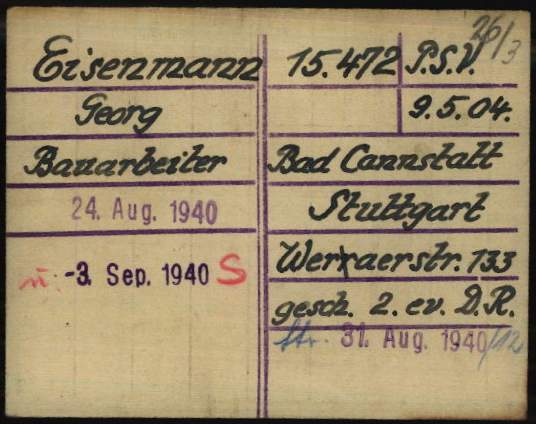 26/3
Eisenmann 15.472 P.S.V.
Georg 9.5.04.
Bauarbeiter Bad Cannstatt
24. Aug. 1940 Stuttgart
-3. Sep. 1940 S 133
gesch. 2. ev. D.R.
Str. 31. Aug. 1940/12